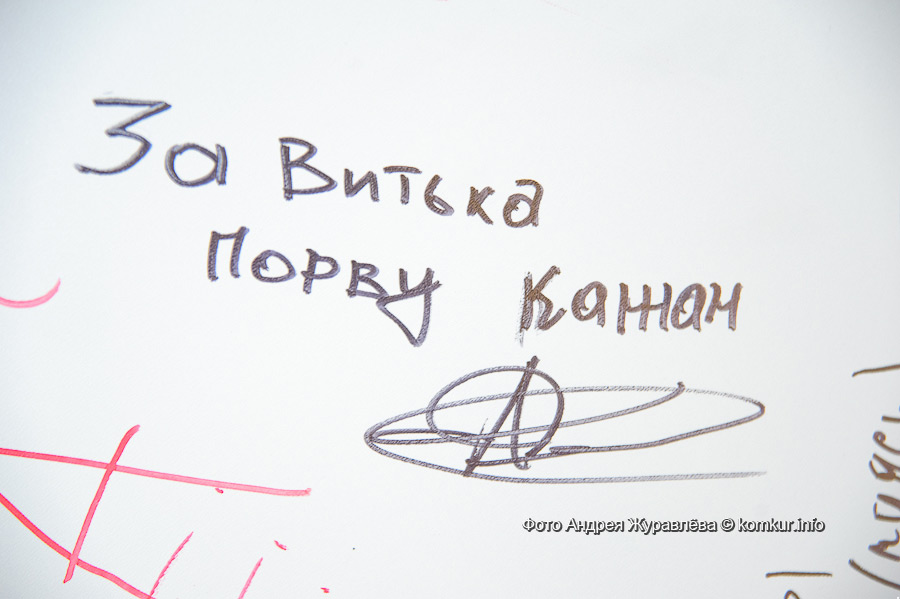 За Витька
Порву Каннан
Фото Андрея Журавлёва © komkur.info